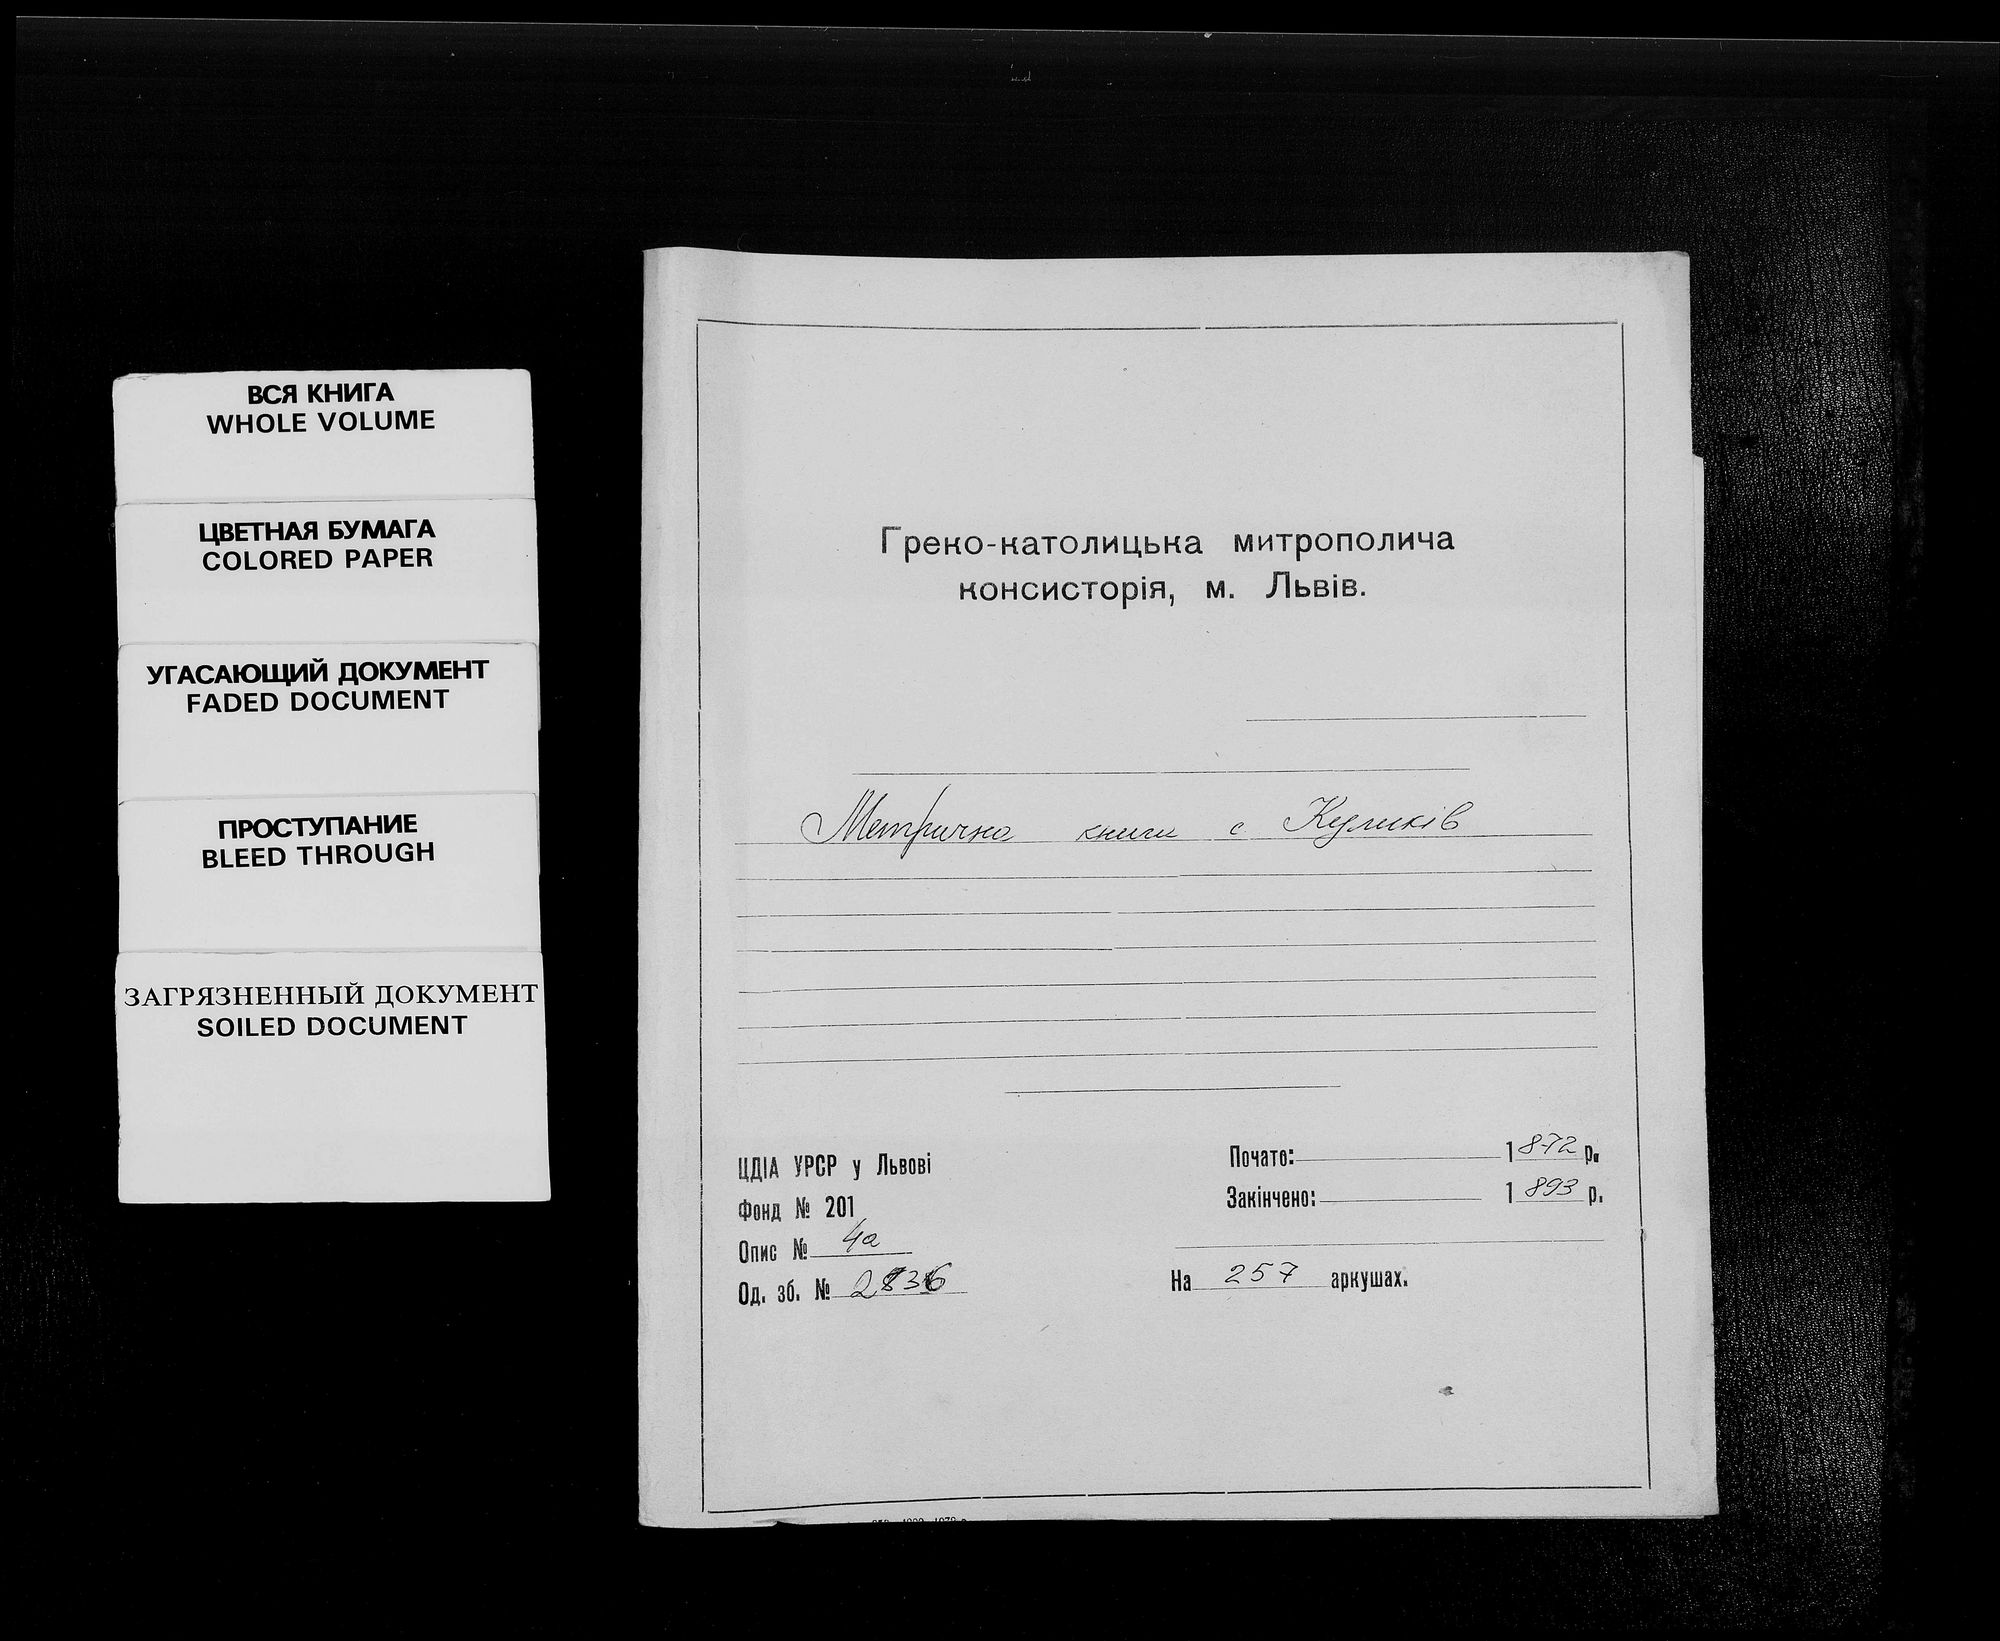 ВСЯ КНИГА
WHOLE VOLUME
ЦВЕТНАЯ БУМАГА
COLORED PAPER
УГАСАЮЩИЙ ДОКУМЕНТ
FADED DOCUMENT
ПРОСТУПАНИЕ
BLEED THROUGH
ЗАГРЯЗНЕННЫЙ ДОКУМЕНТ
SOILED DOCUMENT
Греко-католицька митрополича
консисторія, м. Львів.
Метрична книги с Куликів
ЦДІА УРСР у Львові
Фонд № 201
Опис № 4а
Од. зб. №
Почато: 1872 р.
Закінчено: 1893 р.
На 257 аркушах.